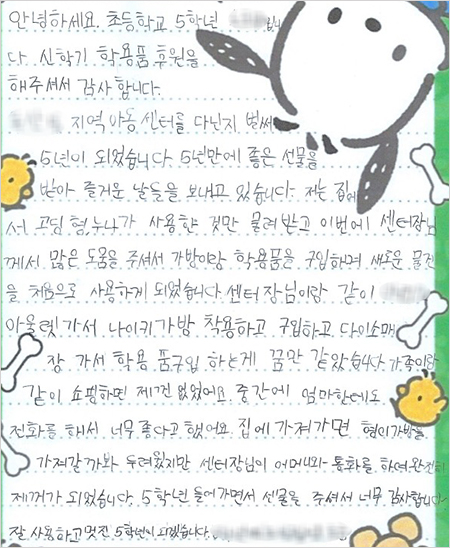 안녕하세요. 초등학교 5학년 입니
다. 신학기 학용품 후원을
해주셔서 감사 합니다.
지역 아동 센터를 다닌지 벌써
5년이 되었습니다 5년만에 좋은 선물을
받아 즐거운 날들을 보내고 있습니다. 저는 집에
서 고딩 형, 누나가 사용한 것만 물려받고 이번에 센터장님
께서 많은 도움을 주셔서 가방이랑 학용품을 구입하며 새로운 물건
을 처음으로 사용하게 되었습니다. 센터장님이랑 같이
아울렛가서 나이키가방 착용하고 구입하고 다이소매
장 가서 학용 품구입 하는게 꿈만 같았습니다 가족이랑
같이 쇼핑하면 제껀 없었어요. 중간에 엄마한테도
전화를 해서 너무 좋다고 했어요 집에 가져가면 형이 가방을
가져갈까봐 두려웠지만 센터장님이 어머니와 통화를 하여 완전히
제꺼가 되었습니다. 5학년 들어가면서 선물을 주셔서 너무 감사합니다
잘 사용하고 멋진 5학년이 되겠습니다.